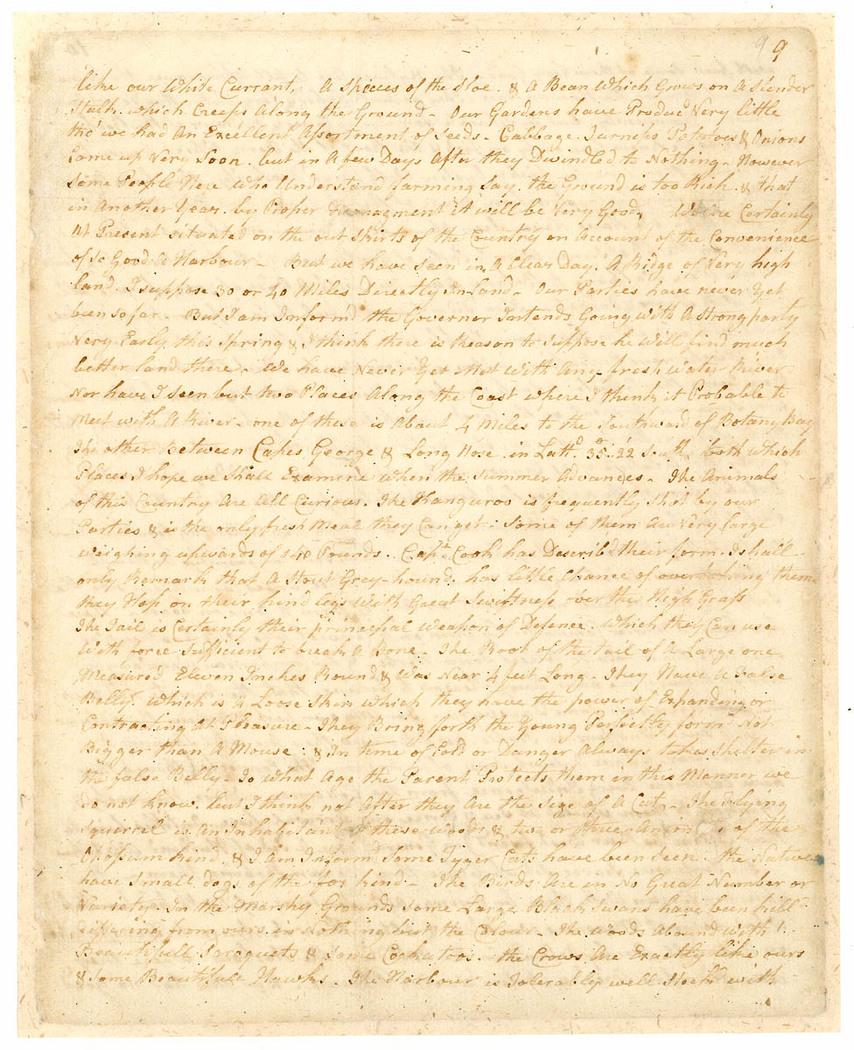 9 9
like our White Currant, A Species of the Sloe. & A Bean Which Grows on A Slender
Stalk. which Creeps Along the Ground - Our Gardens have Produc'd Very little
tho' we had An Excellent Assortment of Seeds - Cabbage. Turneps Potatoes & Onions
Came up Very Soon. but in A few Days After they Dwindled to Nothing - However
Some People Here Who Understand farming Say. the Ground is too Rich. & that
in Another Year. by Proper Managment it will be Very Good. We are Certainly
At Present situated on the out Skirts of the Country on Account of the Convenience
of So Good A Harbour - But we have seen in A Clear Day. A Ridge of Very high
land. I suppose 30 or 40 Miles Directly In land - Our Parties have never Yet
been so far - But I am Inform'd the Governor Intends Going with A Strong party
Very Early this Spring & I think there is Reason to Suppose he will find much
better land there - We have Never Yet Met With Any fresh Water River
Nor have I seen but two Places Along the Coast where I think it Probable to
Meet with A River - one of these is About 4 Miles to the Southward of Botany Bay
The other Between Capes George & Long Nose. in Latt.d 35..22 South both which
Places I hope we shall Examine when the Summer Advances - The Animals
of this Country Are All Curious. The Kanguroo is frequently Shot by our
Parties & is the only fresh Meat they Can get: Some of them Are Very large
weighing upwards of 140 Pounds. Cap.t Cook has Describ'd their form. I shall
only Remark that A Stout Grey-hound. has little Chance of overtaking them
they Hop on their hind legs With Great Swiftness over the High Grass
The Tail is Certainly their principal Weapon of Defence. Which they Can use
With force Sufficient to break A Bone - The Root of the tail of A Large one
Measured Eleven Inches Round & Was Near 4 feet Long - They Have A False
Belly. Which is A Loose Skin which they have the power of Expanding or
Contracting At Pleasure - They Bring forth the Young Perfectly form'd Not
Bigger than A Mouse: & In time of Cold or Danger Always takes Shelter in
the false Belly - To what Age the Parent Protects them in this Manner we
do not know. but I think not After they Are the Size of A Cat - The Flying
Squirrel is An Inhabitant of these Woods & two or three of the
Opossum kind. & I Am Inform'd Some Tyger Cats have been Seen. the Natives
have Small dogs of the fox kind - The Birds Are in No Great Number or
Variety. In the Marshy Grounds some Large Black Swans have been kill'd
differing from ours in Nothing but the Colour - The Woods Abound with
Beautifull Paroquets & Some Cockatoos. the Crows Are Exactly like ours
& Some Beautifull Hawks. The Harbour is Tolerably well Stock'd with